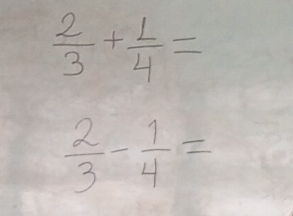 2/3 + 1/4 =
2/3 - 1/4 =